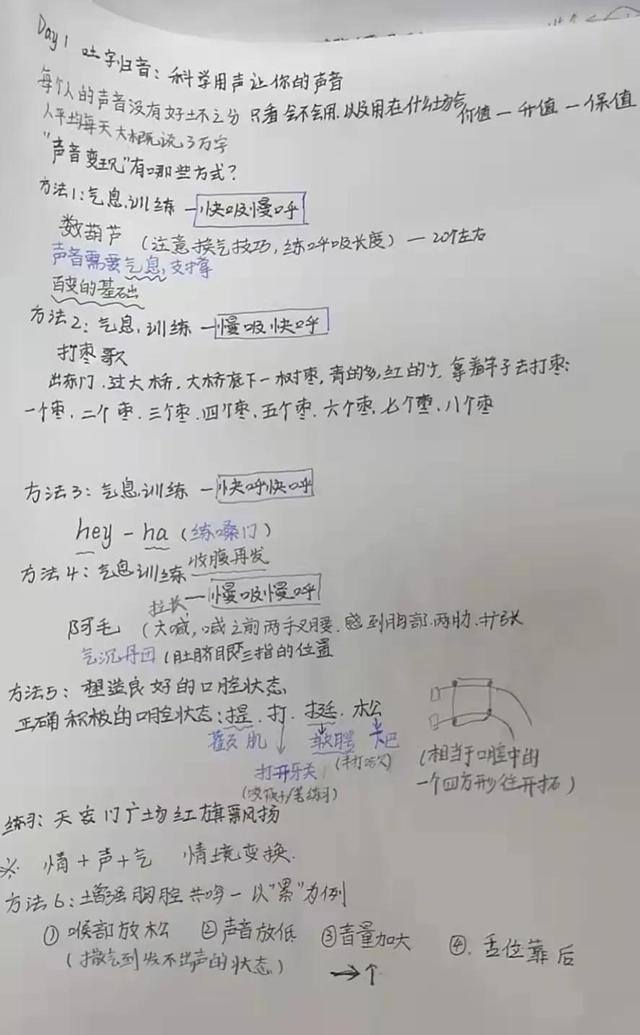 Day 1 吐字归音：科学用声让你的声音
每个人的声音没有好坏之分 只看会不会用，以及用在什么场合 价值－升值－保值
人平均每天大概说3万字
"声音变现"有哪些方式？
方法1：气息训练－快吸慢呼
数葫芦（注意换气技巧，练呼吸长度）－20个左右
声音需要气息，支撑
百变的基础
方法2：气息，训练－慢吸快呼
打枣歌
出东门．过大桥，大桥底下一树枣，青的多，红的少．拿着竿子去打枣：
一个枣．二个枣．三个枣．四个枣，五个枣．六个枣，七个枣，八个枣
方法3：气息训练－快呼快呼
hey－ha（练嗓门）
收腹再发
方法4：气息训练－慢吸慢呼
拉长
阿毛（大喊，喊之前两手叉腰．感到胸部．两肋．扩张
气沉丹田（肚脐眼三指的位置
方法5：塑造良好的口腔状态
正确积极的口腔状态：提．打．挺．松
颧肌 软腭 下巴
打开牙关
（相当于口腔中的
一个四方形往开拓）
练习：天安门广场红旗飘扬
※ 情＋声＋气 情境变换．
方法6：增强胸腔共鸣－以"累"为例
①喉部放松 ②声音放低 ③音量加大 ④．舌位靠后
（撒气到发不出声的状态） →↑